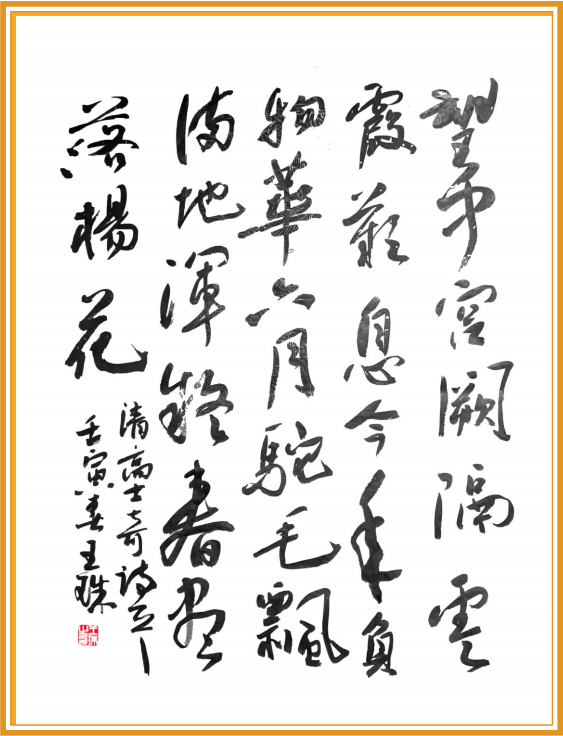 望中宮闕隔雲
霞歎息今年負
物華六月駝毛飄
滿地渾疑春盡
落楊花
清高士奇詩
壬寅春王珠